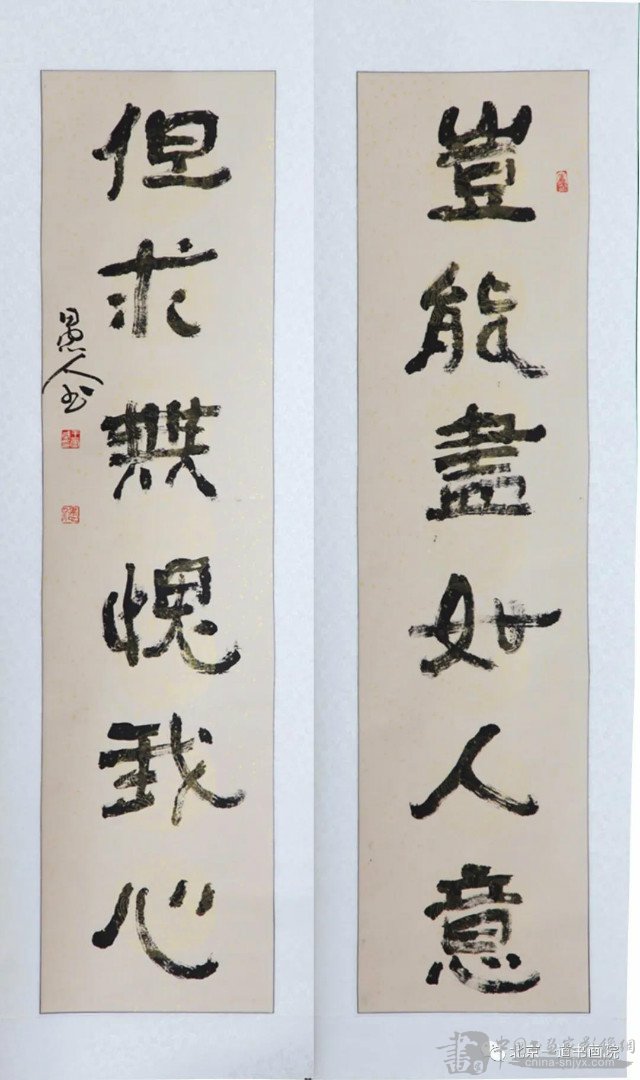 豈能盡如人意
但求無愧我心
愚人书
北京一道书画院
china-snjyx.com